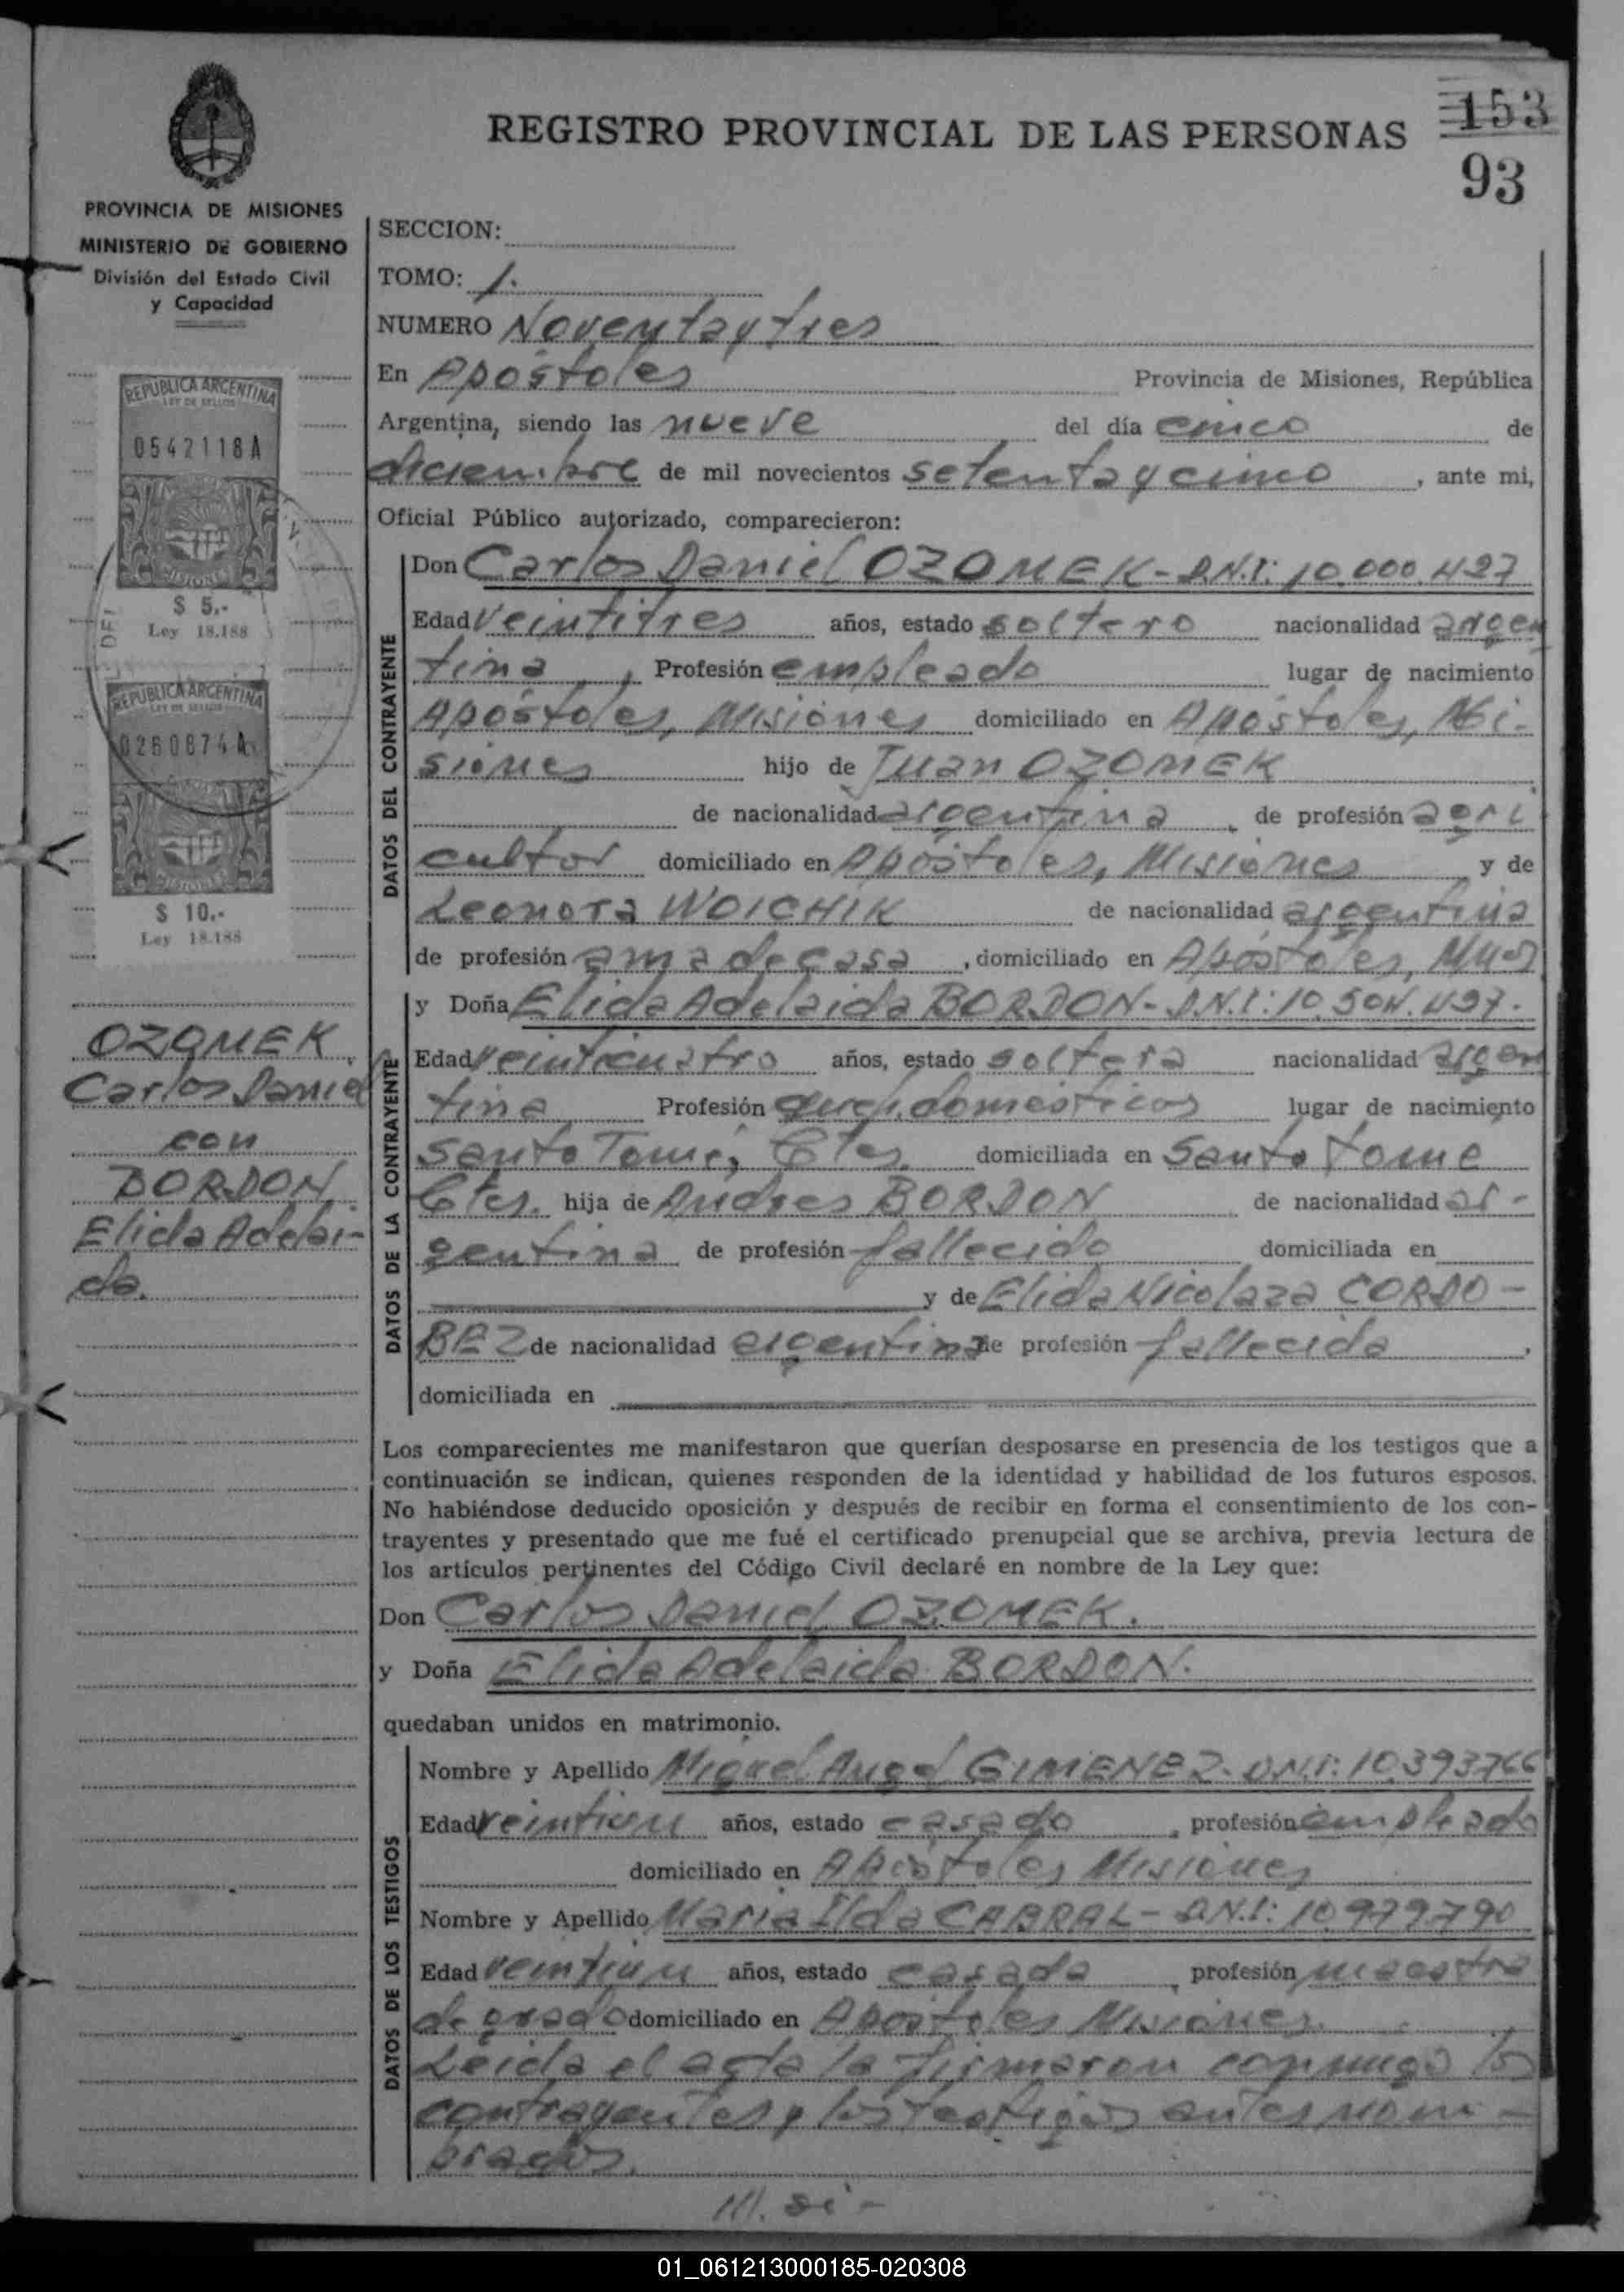 153
93
REGISTRO PROVINCIAL DE LAS PERSONAS
PROVINCIA DE MISIONES
MINISTERIO DE GOBIERNO
División del Estado Civil
y Capacidad
REPUBLICA ARGENTINA
LEY DE SELLOS
0542118A
MISIONES
$ 5.-
Ley 18.188
REPUBLICA ARGENTINA
LEY DE SELLOS
0260874A
MISIONES
$ 10.-
Ley 18.188
OZOMEK
Carlos Daniel
con
BORDON
Elida Adelai-
da.
SECCION:
TOMO: 1.
NUMERO Noventa y tres
En Apóstoles Provincia de Misiones, República
Argentina, siendo las nueve del día cinco de
diciembre de mil novecientos setenta y cinco, ante mi,
Oficial Público autorizado, comparecieron:
DATOS DEL CONTRAYENTE
Don Carlos Daniel OZOMEK - D.N.I: 10.000.427
Edad veintitres años, estado soltero nacionalidad argen
tina, Profesión empleado lugar de nacimiento
Apóstoles, Misiones domiciliado en Apóstoles, Mi-
siones hijo de Juan OZOMEK
de nacionalidad argentina, de profesión agri
cultor domiciliado en Apóstoles, Misiones y de
Leonora WOICHIK de nacionalidad argentina
de profesión ama de casa, domiciliado en Apóstoles,
DATOS DE LA CONTRAYENTE
y Doña Elida Adelaida BORDON - D.N.I: 10.504.437.
Edad veinticuatro años, estado soltera nacionalidad argen
tina Profesión queh. domésticos lugar de nacimiento
Santo Tomé, Ctes. domiciliada en Santo Tomé
Ctes. hija de Andres BORDON de nacionalidad ar-
gentina de profesión fallecido domiciliada en
y de Elida Nicolaza CORDO-
BEZ de nacionalidad argentina de profesión fallecida,
domiciliada en
Los comparecientes me manifestaron que querían desposarse en presencia de los testigos que a
continuación se indican, quienes responden de la identidad y habilidad de los futuros esposos.
No habiéndose deducido oposición y después de recibir en forma el consentimiento de los con-
trayentes y presentado que me fué el certificado prenupcial que se archiva, previa lectura de
los artículos pertinentes del Código Civil declaré en nombre de la Ley que:
Don Carlos Daniel OZOMEK.
y Doña Elida Adelaida BORDON.
quedaban unidos en matrimonio.
DATOS DE LOS TESTIGOS
Nombre y Apellido Miguel Angel GIMENEZ - D.N.I: 10.393766
Edad veintiun años, estado casado, profesión empleado
domiciliado en Apóstoles Misiones
Nombre y Apellido Maria Ilda CABRAL - D.N.I: 10.979790
Edad veintiun años, estado casada, profesión maestra
de grado domiciliado en Apóstoles Misiones.
Leida el acta la firmaron conmigo los
contrayentes y los testigos antes nom-
brados.
01_061213000185-020308